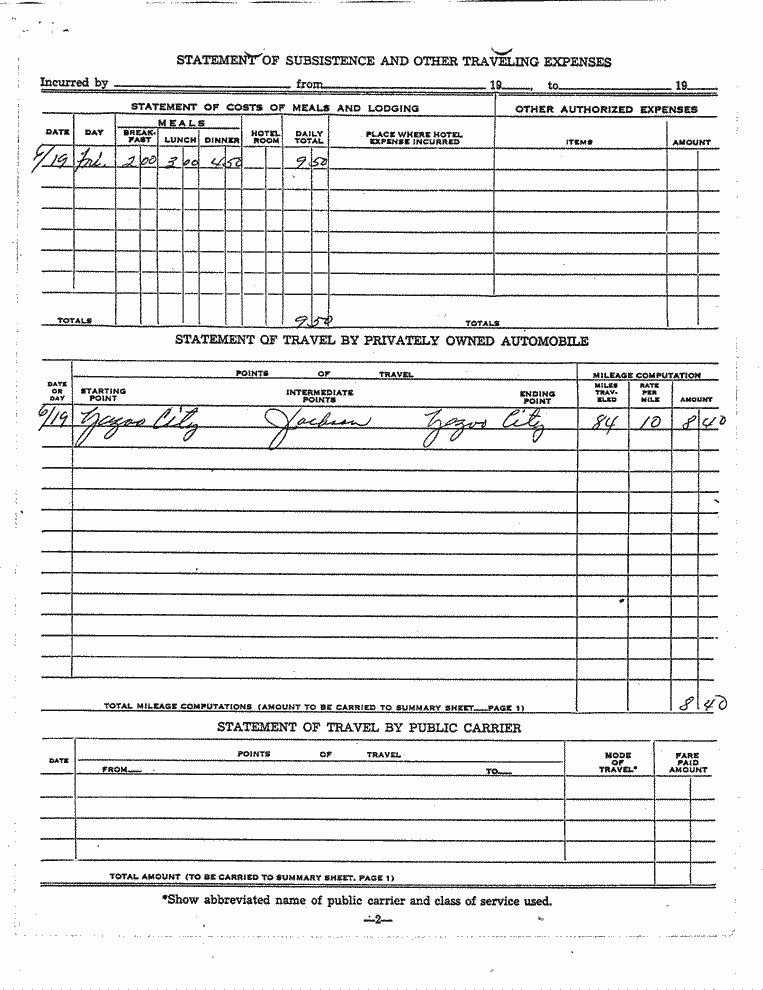 STATEMENT OF SUBSISTENCE AND OTHER TRAVELING EXPENSES
Incurred by from 19 , to 19
STATEMENT OF COSTS OF MEALS AND LODGING OTHER AUTHORIZED EXPENSES
DATE DAY MEALS BREAK-FAST LUNCH DINNER HOTEL ROOM DAILY TOTAL PLACE WHERE HOTEL EXPENSE INCURRED ITEMS AMOUNT
6/19 Fri. 2 00 3 00 4 50 9 50
TOTALS 9 50 TOTALS
STATEMENT OF TRAVEL BY PRIVATELY OWNED AUTOMOBILE
POINTS OF TRAVEL MILEAGE COMPUTATION
DATE OR DAY STARTING POINT INTERMEDIATE POINTS ENDING POINT MILES TRAV-ELED RATE PER MILE AMOUNT
6/19 Yazoo City Jackson Yazoo City 84 10 8 40
TOTAL MILEAGE COMPUTATIONS (AMOUNT TO BE CARRIED TO SUMMARY SHEET PAGE 1) 8 40
STATEMENT OF TRAVEL BY PUBLIC CARRIER
DATE POINTS OF TRAVEL MODE OF TRAVEL* FARE PAID AMOUNT
FROM TO
TOTAL AMOUNT (TO BE CARRIED TO SUMMARY SHEET, PAGE 1)
*Show abbreviated name of public carrier and class of service used.
—2—